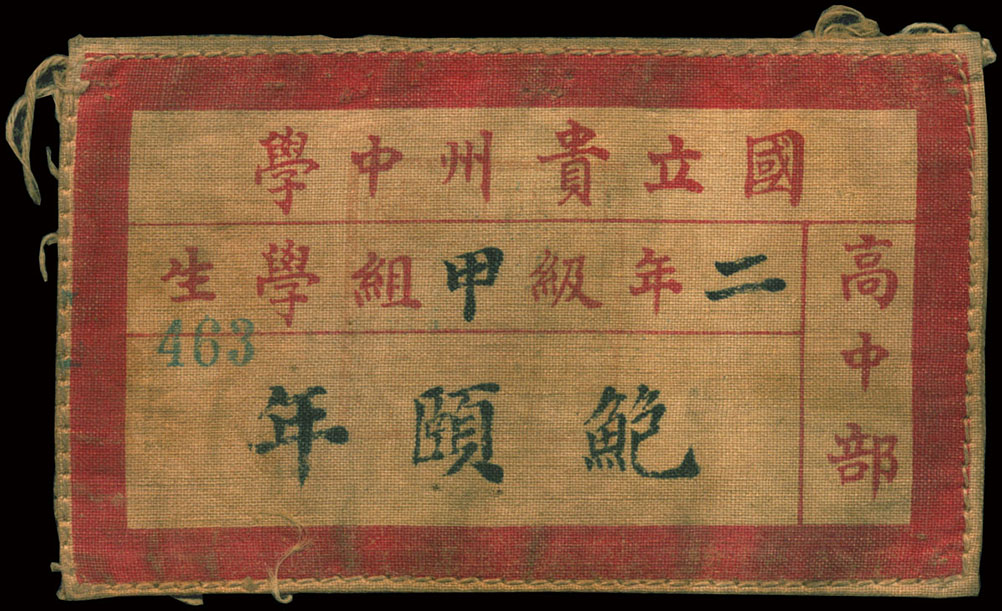 國立貴州中學
高中部
二年級甲組學生
463
鮑頤年